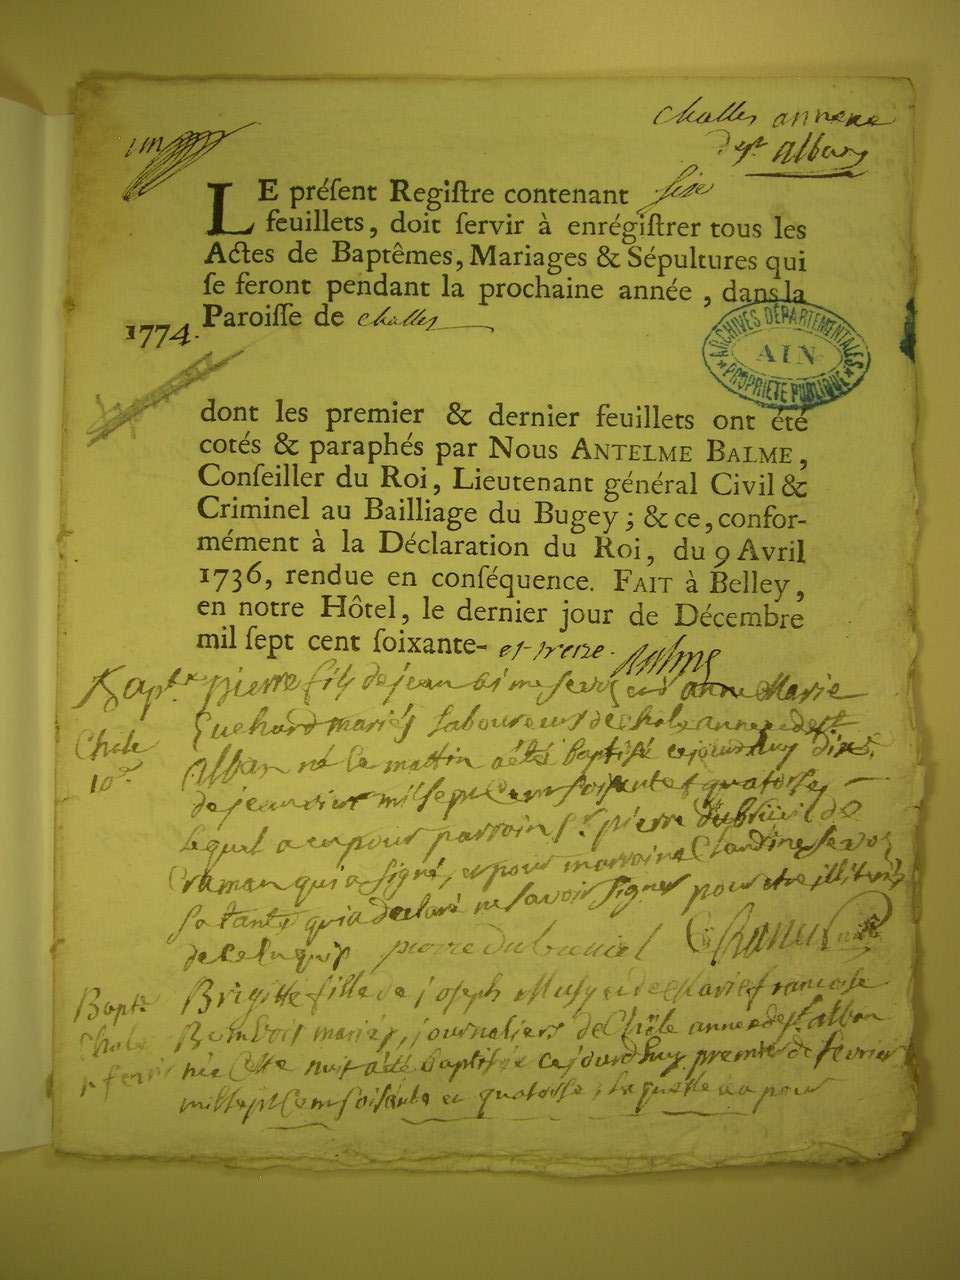 un
challes annexe
de st alban
LE préſent Regiſtre contenant six
feuillets, doit ſervir à enrégiſtrer tous les
Actes de Baptêmes, Mariages & Sépultures qui
ſe feront pendant la prochaine année, dans la
Paroiſſe de challes
1774.
ARCHIVES DÉPARTEMENTALES
AIN
PROPRIETE PUBLIQUE
dont les premier & dernier feuillets ont été
cotés & paraphés par NOUS ANTELME BALME,
Conſeiller du Roi, Lieutenant général Civil &
Criminel au Bailliage du Bugey; & ce, confor-
mément à la Déclaration du Roi, du 9 Avril
1736, rendue en conſéquence. FAIT à Belley,
en notre Hôtel, le dernier jour de Décembre
mil ſept cent ſoixante- et treze. Balme
Bapt. pierre fils de jean anne Marie
mariés laboureurs de annexe de st
Chale
alban né le mattin a été baptisé cejourdhuy dix
10
de janvier mil sept Cent soisante et quatorse
lequel a eu pour parroin pierre dubrüeil de
Craman qui a signé, et pour marroine Claudine
sa tante qui a declaré ne savoir signer pour etre illiteré
de ce enquis pierre dubrueiel
Bapt.
Brigitte fille de joseph et de Marie francoise
Chale
mariés, journaliers de Chale annexe de st alban
1r fevri
née Cette nuit a été baptisée cejourdhuy premier de fevrier
mil sept Cent soisante et quatorse, laquelle a eu pour